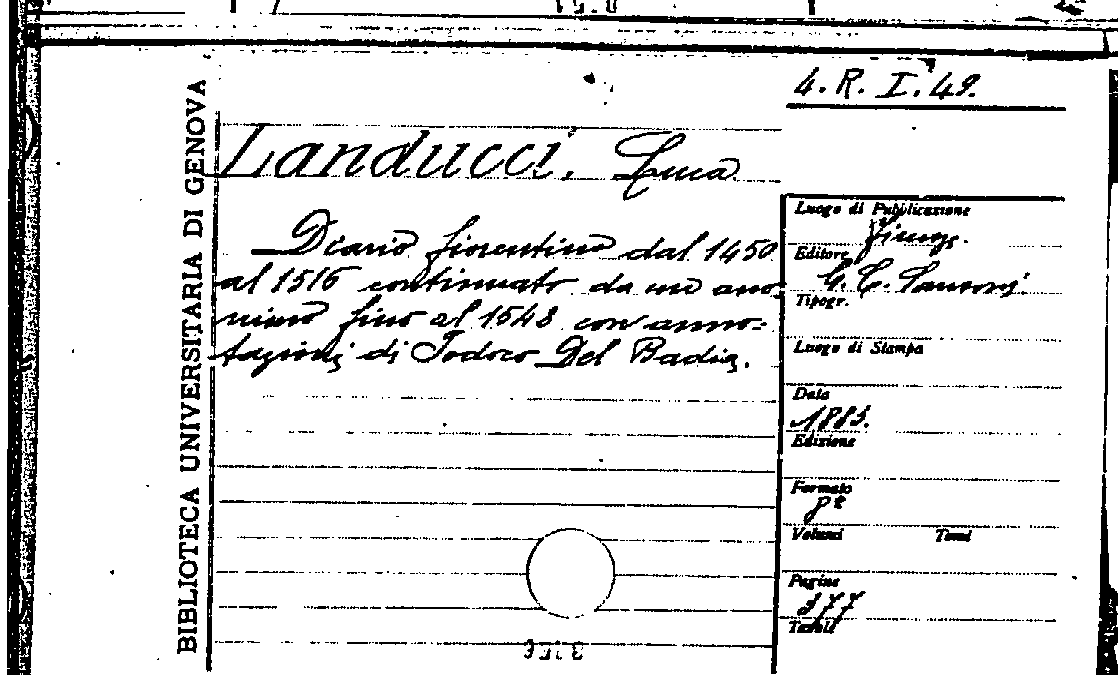 4. R. I. 49.
BIBLIOTECA UNIVERSITARIA DI GENOVA
Landucci, Luca
Diario fiorentino dal 1450
al 1516 continuato da un ano-
nimo fino al 1543 con anno-
tazioni di Jodoco Del Badia.
Luogo di Pubblicazione
Firenze.
Editore
G. C. Sansoni
Tipogr.
Luogo di Stampa
Data
1883.
Edizione
Formato
Volumi Tomi
Pagine
377
Tavole